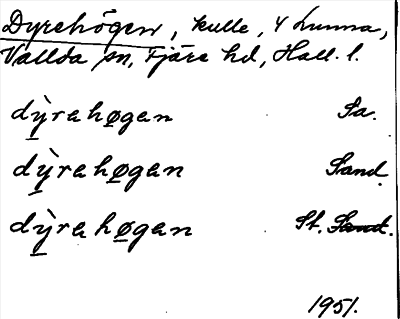 Dyrehögen, kulle, 4 Lunna,
Vallda sn, Fjäre hd, Hall. l.
dỳrahøgan Sa.
dỳrahøgan Sand.
dỳrahøgan St. Sand.
1951.